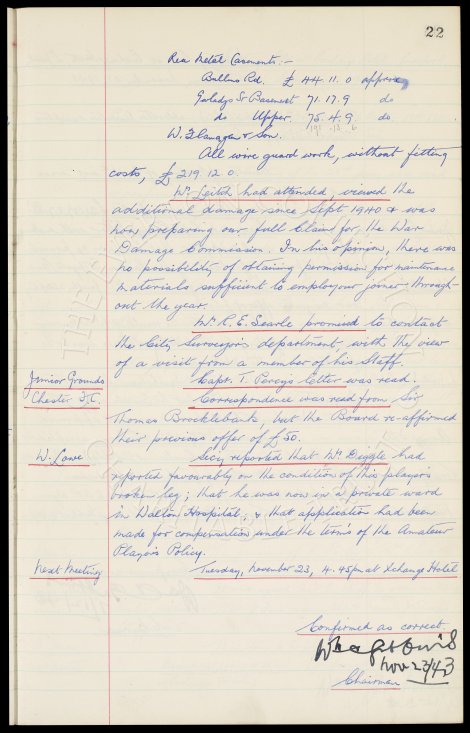 22
Rea Metal Casements:-
Bullens Rd. £44.11.0 approx,
Gwladys St Basement 71.17.9 do
do Upper. 75.4.9. do
191. 13. 6
W. Flanagan & Son.
All wire guard work, without fitting
costs, £219.12.0.
Mr. Leitch had attended, viewed the
additional damage since Sept 1940 & was
now preparing our full Claim for, the War
Damage Commission. In his opinion, there was
no possibility of obtaining permission for maintenance
materials sufficient to employ our joiner through-
out the year.
Mr. R. E. Searle promised to contact
the City Surveyor's department with the view
of a visit from a member of his Staff.
Junior Grounds Capt. T. Percy's letter was read.
Chester F.C. Correspondence was read from Sir
Thomas Brocklebank, but the Board re-affirmed
their previous offer of £50.
W. Lowe Secy, reported that Mr. Diggle had
reported favourably on the condition of this player's
broken leg; that he was now in a private ward
in Walton Hospital; & that application had been
made for compensation under the terms of the Amateur
Players Policy.
Next Meeting Tuesday, November 23, 4.45pm at Xchange Hotel
Confirmed as correct.
Nov 23/43
Chairman